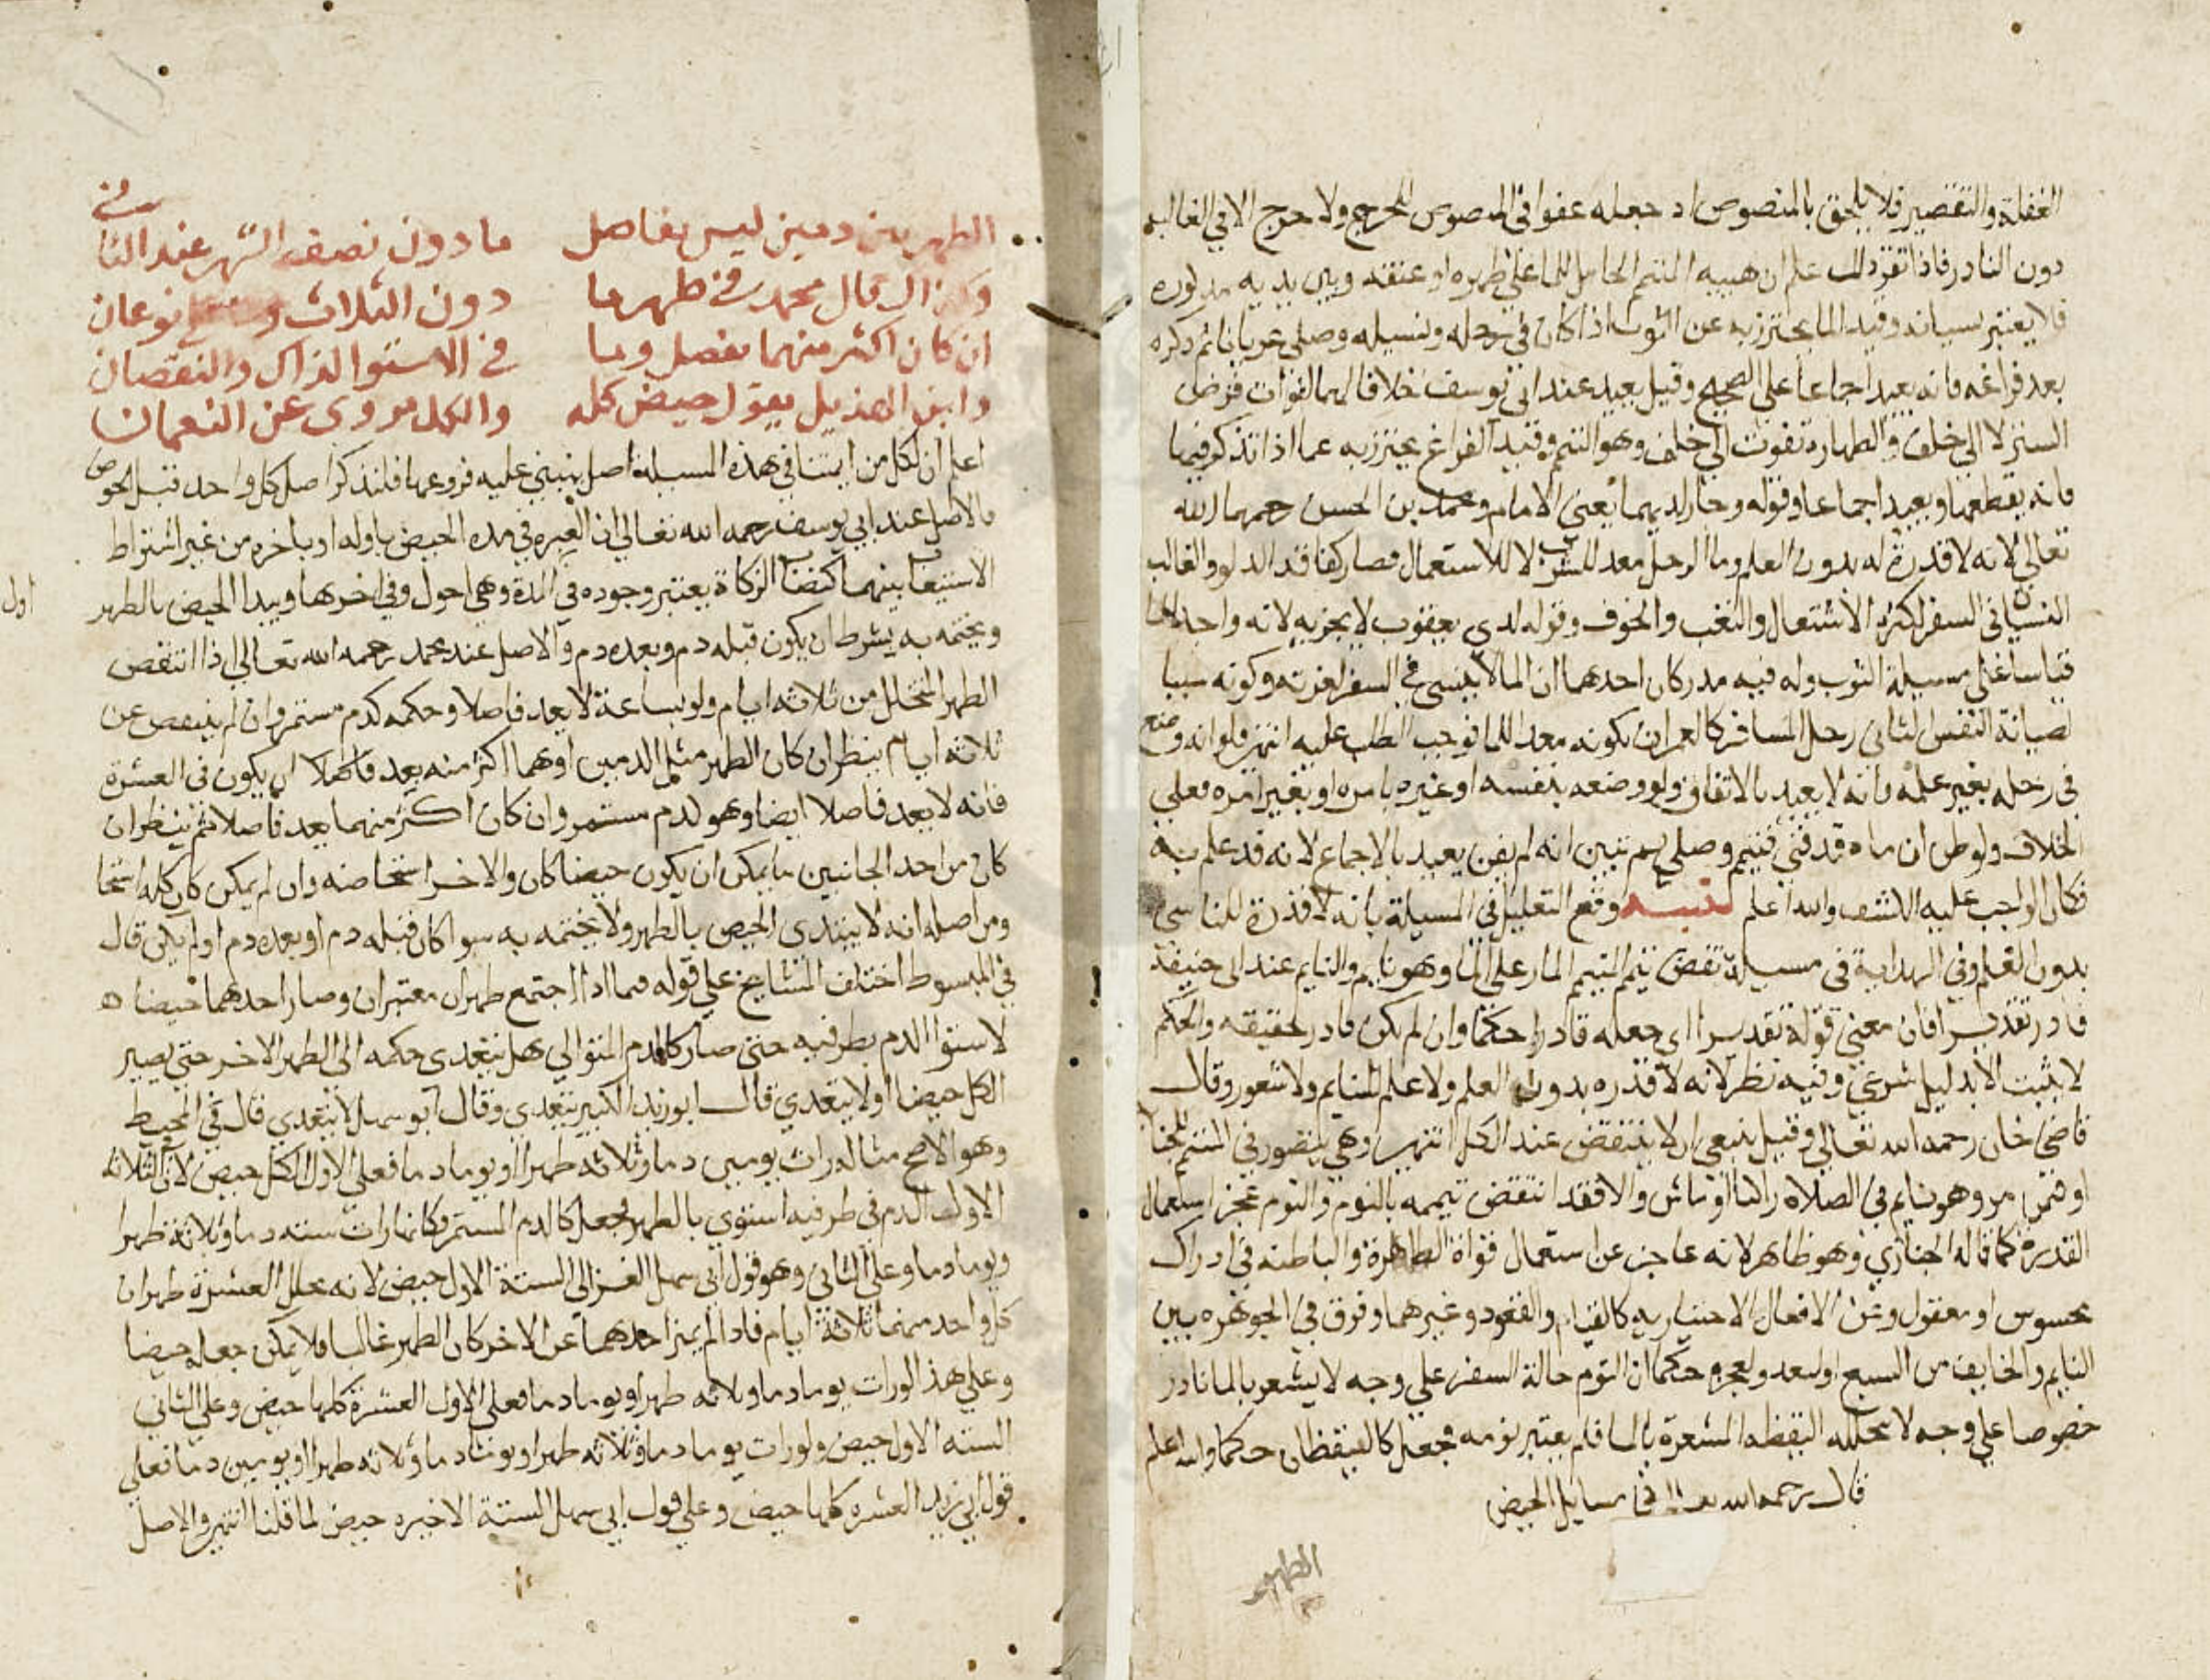 الغفلة والتقصير فلا يلحق بالمنصوص اد جعله عفوا في المنصوص للحرج ولا حرج الا في الغالب
دون النادر فاذا تقرر ذلك علم ان هيبه المتيمم الحامل للما على ظهره او عنقه وبين يديه مدلوره
فلا يعتبر نسيانه وقيد الما يحترز به عن الثوب اذا كان في رحله ونسيه وصلى عريانا ثم ذكره
بعد فراغه فانه يعيد اجماعا على الصحيح وقيل يعيد عند ابي يوسف خلافا لهما لفوات فرض
الستر لا الى خلف والطهارة تفوت الى خلف وهو التيمم وقيد الفراغ يحترز به عما اذا تذكر فيها
فانه يقطعها ويعيد اجماعا وقوله وجاز لديهما يعني الامام ومحمد بن الحسن رحمهما الله
تعالى لانه لا قدرة له بدون العلم وما الرحل معد للشرب لا للاستعمال فصار كفاقد الدلو والغالب
النسيان في السفر لكثرة الاشتغال والتعب والخوف وقوله لدى يعقوب لا يجزيه لانه واجد للما
قياسا على مسيلة الثوب وله فيه مدركان احدهما ان الما لا ينسى في السفر لعزته وكونه سببا
لصيانة النفس الثاني رحل المسافر كالعمران لكونه معد للما فوجب الطلب عليه انتهى ولو انه وضع
في رحله بغير علمه فانه لا يعيد بالاتفاق ولو وضعه بنفسه او غيره بامره او بغير امره فعلى
الخلاف ولو ظن ان ماه قد فني فتيمم وصلى ثم تبين انه لم يفن يعيد بالاجماع لانه قد علم به
فكان الواجب عليه الكشف والله اعلم تنبيه وقع التعليل في المسيلة بانه لا قدرة للناسي
بدون العلم وفي الهداية في مسيلة نقض تيمم المتيمم المار على الما وهو نايم والنايم عند ابي حنيفة
قادر تقديرا فان معنى قوله تقديرا اي جعله قادرا حكما وان لم يكن قادر حقيقه والحكم
لا يثبت الا بدليل شرعي وفيه نظر لانه لا قدره بدون العلم ولا علم للنايم ولا شعور وقال
قاضي خان رحمه الله تعالى وقيل ينبغي ان لا ينتقض عند الكل انتهى وهي يتصور في المتيمم للجنا
او فتمن مر وهو نايم في الصلاة راكبا او ماش والا فقد انتقض تيممه بالنوم والنوم عجز استعمال
القدرة كما قاله الخبازي وهو ظاهر لانه عاجز عن استعمال قواه الظاهرة والباطنه في ادراك
محسوس او معقول وعن الافعال الاختياريه كالقيام والقعود وغيرهما وفرق في الجوهره بين
النايم والخايف من السبع او لعدو لعجزه حكما ان النوم حالة السفر على وجه لا يشعر بالما نادر
خصوصا على وجه لا يتخلله اليقظه المشعرة بالما فلم يعتبر نومه فجعل كاليقظان حكما والله اعلم
قال رحمه الله تعالى في مسايل الحيض
الطهر
الطهر بين دمين ليس بفاصل ما دون نصف الشهر عند الثاني
وكذاك قال محمد في طهر ما دون الثلاث نوعان
ان كان اكثر منهما بفصل وما في الاستوا لذاك والنقصان
وابن الهذيل يقول حيض كله والكل مروى عن النعمان
اعلم ان لكل من ايمتنا في هذه المسيلة اصل ينبني عليه فروعها فلنذكر اصل كل واحد قبل الخوض
فالاصل عند ابي يوسف رحمه الله تعالى ان العبرة في مده الحيض باوله او باخره من غير اشتراط
الاستيعاب بينهما كنصاب الزكاة يعتبر وجوده في المدة وهي احول وفي اخرها ويبدا الحيض بالطهر
اول
ويختمه به بشرط ان يكون قبله دم وبعده دم والاصل عند محمد رحمه الله تعالى اذا انتقص
الطهر المتخلل من ثلاثه ايام ولو بساعة لا يعد فاصلا وحكمه كدم مستمر وان لم ينتقص عن
ثلاثه ايام ينظر ان كان الطهر مثل الدمين او هما اكثر منه بعد فاصلا ان يكون في العشرة
فانه لا يعد فاصلا ايضا وهو لدم مستمر وان كان اكثر منهما يعد فاصلا ثم ينظر ان
كان من احد الجانبين ما يمكن ان يكون حيضا كان والاخر استحاضه وان لم يمكن كان كله استحا
ومن اصله انه لا يبتدي الحيض بالطهر ولا يختمه به سوا كان قبله دم او بعده دم او لم يكن قال
في المبسوط اختلف المشايخ على قوله فيما اذا اجتمع طهران معتبران وصار احدهما حيضا
لاستوا الدم بطرفيه حتى صار كالدم المتوالي هل يتعدى حكمه الى الطهر الاخر حتى يصير
الكل حيضا او لا يتعدي قال ابو زيد الكبير يتعدى وقال ابو سهل لا يتعدي قال في المحيط
وهو الاصح مثاله رات يومين دما وثلاثه طهرا ويوما دما فعلى الاول الكل حيض لان الثلاثه
الاولى الدم في طرفيه استوى بالطهر فجعل كالدم المستمر فكانها رات سته دما وثلاثة طهرا
ويوما دما وعلى الثاني وهو قول ابي سهل الغزالي الستة الاول حيض لانه تخلل العشرة طهران
كل واحد منهما ثلاثة ايام فاذا لم يميز احدهما عن الاخر كان الطهر غالبا فلا يمكن جعله حيضا
وعلى هذا لو رات يوما دما وثلاثه طهرا ويوما دما فعلى الاول العشرة كلها حيض وعلى الثاني
السته الاول حيض ولو رات يوما دما وثلاثه طهرا ويوما دما وثلاثه طهرا ويومين دما فعلى
قول ابي زيد العشره كلها حيض وعلى قول ابي سهل الستة الاخيره حيض لما قلنا انتهى والاصل